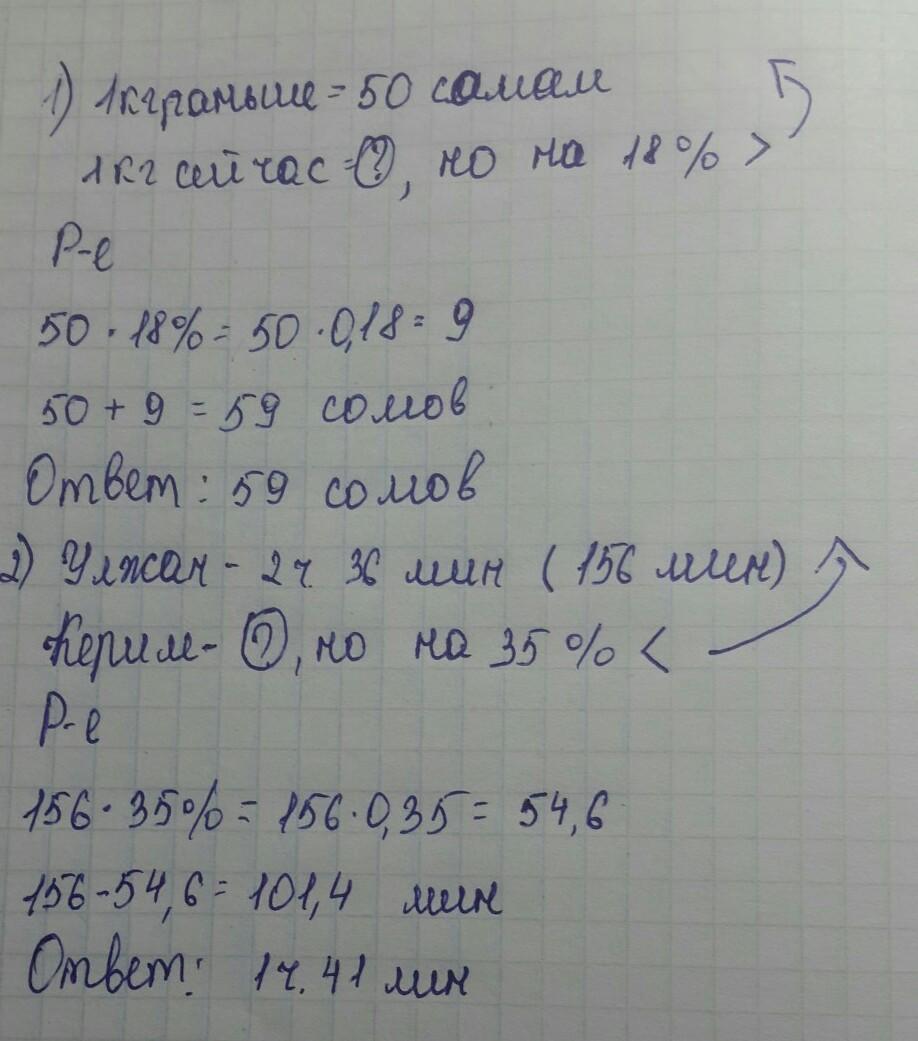 1) 1кг раньше = 50 сомам
1кг сейчас = ?, но на 18% >
Р-е
50 · 18% = 50 · 0,18 = 9
50 + 9 = 59 сомов
Ответ: 59 сомов
2) Улжан - 2 ч. 36 мин (156 мин)
Керим - ?, но на 35% <
Р-е
156 · 35% = 156 · 0,35 = 54,6
156 - 54,6 = 101,4 мин
Ответ: 1ч. 41 мин